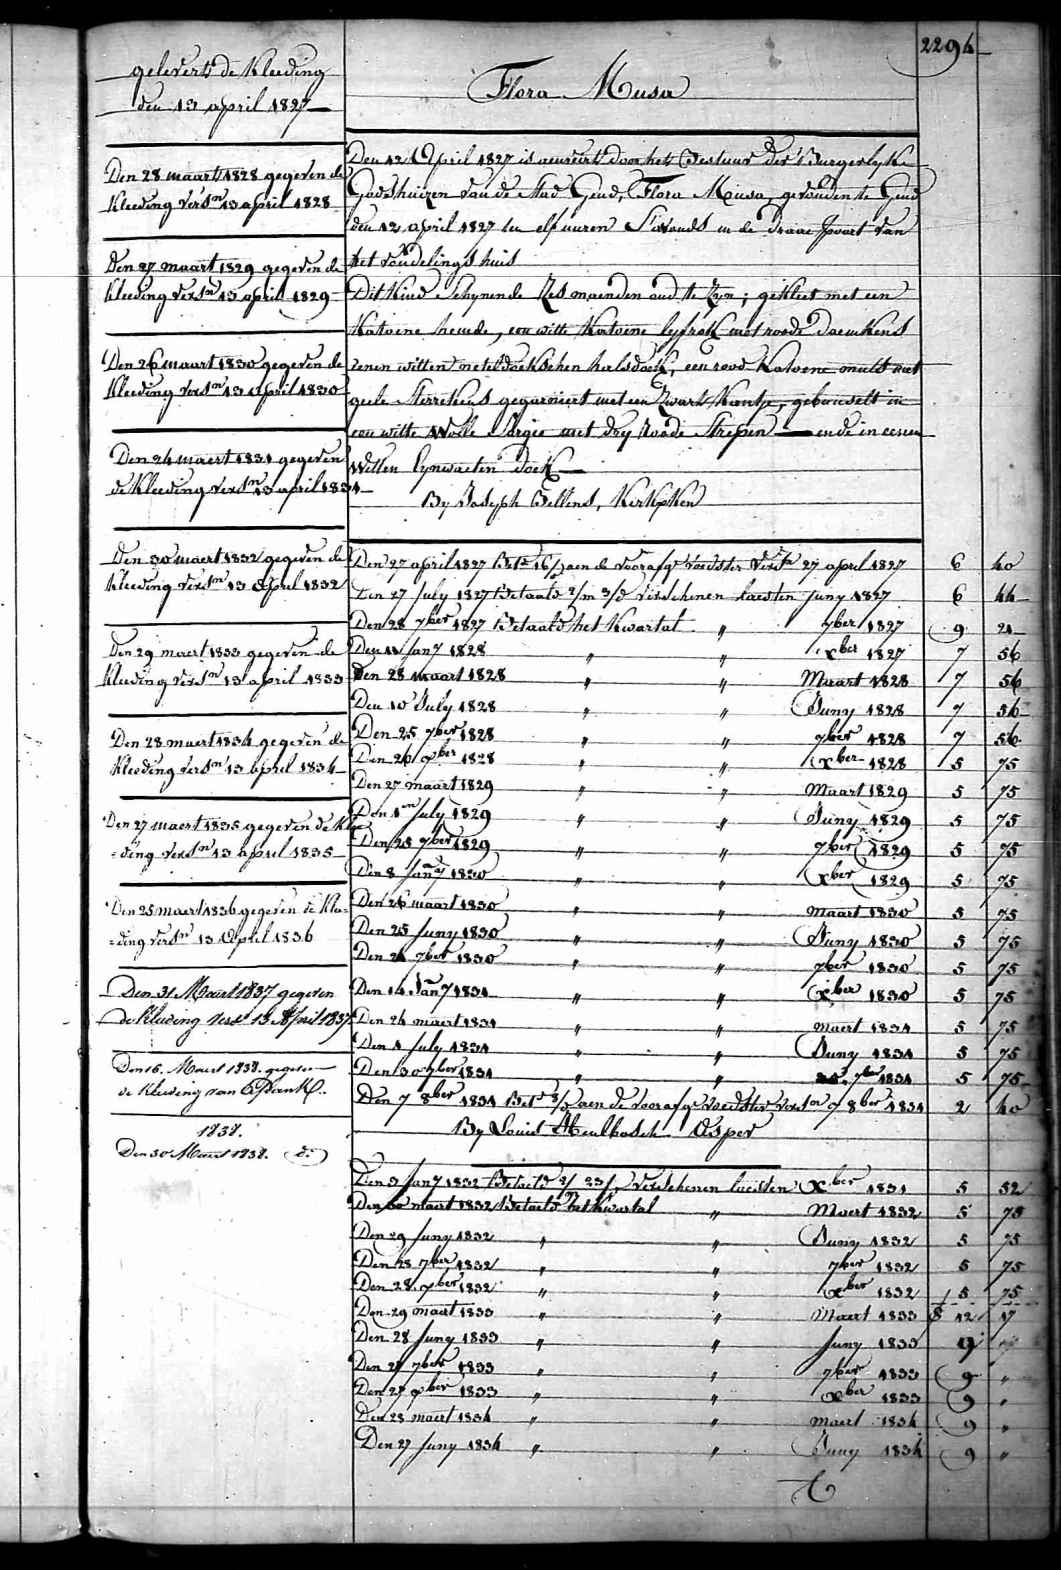 2294
Flora Musa
geleverd de Kleeding
den 13 april 1827
Den 28 maart 1828 gegeven de
Kleeding versn 13 april 1828
Den 27 maart 1829 gegeven de
kleeding versn 13 april 1829
Den 26 maart 1830 gegeven de
kleeding versn 13 april 1830
Den 24 maert 1831 gegeven
de kleeding versn 13 april 1831
Den 30 maert 1832 gegeven de
kleeding versn 13 April 1832
Den 29 maert 1833 gegeven de
kleeding versn 13 april 1833
Den 28 maert 1834 gegeven de
kleeding versn 13 april 1834
Den 27 maert 1835 gegeven de Klee
=ding versn 13 april 1835
Den 25 maert 1836 gegeven de klee=
=ding versn 13 April 1836
Den 31 Maert 1837 gegeven
de kleeding vers 13 April 1837
Den 16 Maert 1838 gegeven
de kleeding van
1838.
Den 30 Maert 1838.
Den 12 April 1827 is aenveird door het Bestuur der Burgerlyke
Godshuizen van de Stad Gend, Flora Musa, gevonden te Gend
den 12 april 1827 ten elf uuren S'avonds in de draae poort van
het vondelings huis
Dit Kind schynende Zes maenden oud te Zyn; gekleet met een
Katoene hemde, een witte Katoene lyfrok met roode
eenen witten neteldoekschen halsdoek, een rood Katoene muts met
geele Sterrekens gegarneert met een Zwart Kantje, gebonselt in
een witte Wolle Sargie met dry Roode Strepen — ende in eenen
Witten lynwaeten doek
By Joseph Bellens,
Den 27 april 1827 Bete aen de voorafge voedster verste 27 april 1827 6 40
Den 27 July 1827 Betaald 2/m 3/d verschenen laesten Juny 1827 6 44
Den 28 7ber 1827 Betaald het Kwartal " 7ber 1827 9 21
Den 11 Jany 1828 " " xber 1827 7 56
Den 28 maart 1828 " " Maart 1828 7 56
Den 10 July 1828 " " Juny 1828 7 56
Den 25 7ber 1828 " " 7ber 1828 7 56
Den 26 xber 1828 " " xber 1828 5 75
Den 27 maart 1829 " " Maart 1829 5 75
Den 1en July 1829 " " Juny 1829 5 75
Den 25 7ber 1829 " " 7ber 1829 5 75
Den 8 Jany 1830 " " xber 1829 5 75
Den 26 maart 1830 " " Maart 1830 5 75
Den 25 Juny 1830 " " Juny 1830 5 75
Den 24 7ber 1830 " " 7ber 1830 5 75
Den 14 Jany 1831 " " xber 1830 5 75
Den 24 maert 1831 " " maert 1831 5 75
Den 1 July 1831 " " Juny 1831 5 75
Den 30 7ber 1831 " " 7ber 1831 5 75
Den 7 8ber 1831 Bete aen de voorafge voedster versn 7 8ber 1831 2 40
By Louis Meulbosch Asper
Den 5 Jany 1832 Betaeld verschenen laesten Xber 1831 5 52
Den 30 maert 1832 Betaeld het Kwartal " Maert 1832 5 75
Den 29 Juny 1832 " " Juny 1832 5 75
Den 28 7ber 1832 " " 7ber 1832 5 75
Den 28 xber 1832 " " xber 1832 5 75
Den 29 maart 1833 " " Maert 1833 12 17
Den 28 Juny 1833 " " Juny 1833 9 "
Den 27 7ber 1833 " " 7ber 1833 9 "
Den 27 xber 1833 " " xber 1833 9 "
Den 28 maert 1834 " " maert 1834 9 "
Den 27 Juny 1834 " " Juny 1834 9 "